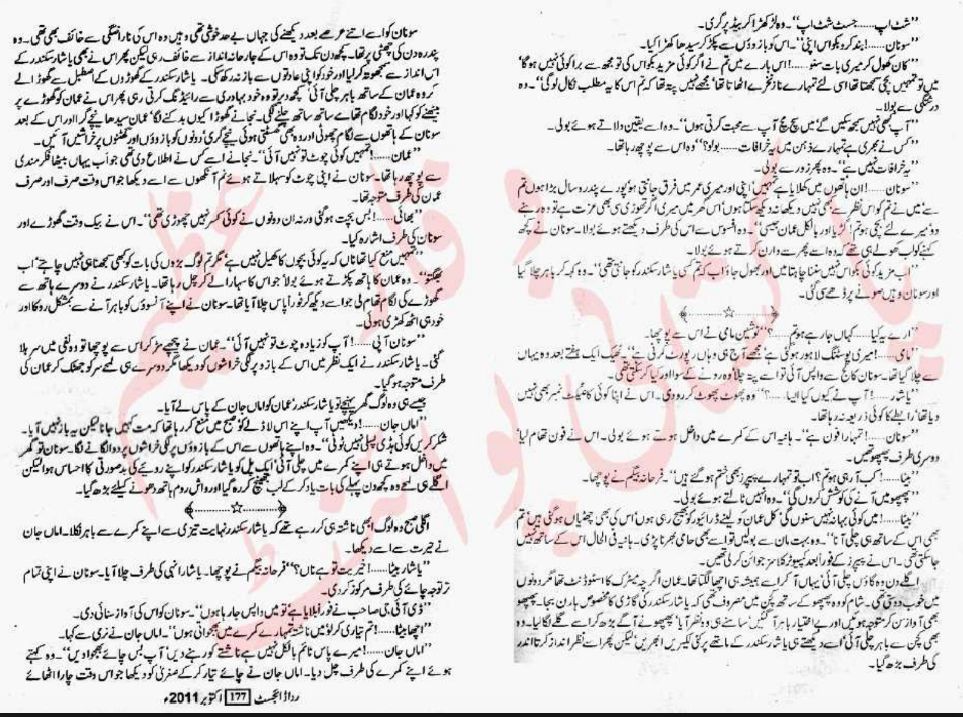 "شٹ اپ......جسٹ شٹ اپ"۔ وہ لڑکھڑا کر بیڈ پر گری۔
"سونان......! بند کرو بکواس اپنی"۔ اس کو بازوؤں سے پکڑ کر سیدھا کھڑا کیا۔
"کان کھول کر میری بات سنو......! اس بارے میں تم نے اگر کوئی مزید بکواس کی تو مجھ سے برا کوئی نہیں ہو گا'
میں تو تمہیں بچی سمجھتا تھا اسی لئے تمہارے ناز نخرے اٹھاتا تھا' مجھے نہیں پتہ تھا کہ تم اس کا یہ مطلب نکال لو گی"۔ وہ
درشتگی سے بولا۔
"آپ کبھی نہیں سمجھ سکیں گے' میں سچ مچ آپ سے محبت کرتی ہوں"۔ وہ اسے یقین دلاتے ہوئے بولی۔
"کس نے بھری ہے تمہارے ذہن میں یہ خرافات......بولو؟" وہ اس سے پوچھ رہا تھا۔
"یہ خرافات نہیں ہے"۔ وہ پھر زور سے بولی۔
"سونان......! ان ہاتھوں میں کھلایا ہے تمہیں' اپنی اور میری عمر میں فرق جانتی ہو' پورے پندرہ سال بڑا ہوں تم
سے' میں نے تم کو اس نظر سے کبھی نہیں دیکھا نہ دیکھ سکتا ہوں' اس گھر میں میری اگر تھوڑی سی بھی عزت ہے تو وہ رہنے
دو' میرے لئے بچی ہو تم! گڑیا اور بالکل عمان جیسی"۔ وہ افسوس سے اس کی طرف دیکھتے ہوئے بولا۔ سونان نے کچھ
کہنے کو لب کھولے ہی تھے کہ وہ اسے پھر سے وارن کرتے ہوئے بولا۔
"اب مزید کوئی بکواس نہیں سننا چاہتا میں اور بھول جاؤ اب کہ تم کسی یاشار سکندر کو جانتی تھی"۔ وہ کہہ کر باہر چلا گیا
اور سونان وہیں صوفے پر ڈھے سی گئی۔
☆
"ارے کیا......کہاں جا رہے ہو تم......؟" نوشین مامی نے اس سے پوچھا۔
"مامی......! میری پوسٹنگ لاہور ہوئی ہے' مجھے آج ہی وہاں رپورٹ کرنی ہے"۔ ٹھیک ایک ہفتے بعد وہ یہاں
سے چلا گیا تھا۔ سونان کالج سے واپس آئی تو اسے پتہ چلا' وہ رونے کے سوا اور کیا کر سکتی تھی۔
"یاشار......! آپ نے کیوں کیا ایسا......؟" وہ پھوٹ پھوٹ کر رو دی۔ اس نے اپنا کوئی کانٹیکٹ نمبر بھی نہیں
دیا تھا' رابطے کا کوئی ذریعہ نہ رہا تھا۔
"سونان......! تمہارا فون ہے"۔ ہانیہ اس کے کمرے میں داخل ہوتے ہوئے بولی۔ اس نے فون تھام لیا'
دوسری طرف پھپھو تھیں۔
"بیٹا......! کب آ رہی ہو تم؟ اب تو تمہارے پیپرز بھی ختم ہو گئے ہیں"۔ فرحانہ بیگم نے پوچھا۔
"پھپھو میں آنے کی کوشش کروں گی"۔ وہ انہیں ٹالتے ہوئے بولی۔
"بیٹا......! میں کوئی بہانہ نہیں سنوں گی' کل عمان کو لینے ڈرائیور کو بھیج رہی ہوں' اس کی بھی چھٹیاں ہو گئی ہیں' تم
بھی اس کے ساتھ ہی چلی آنا"۔ وہ بہت مان سے بولیں تو اسے بھی حامی بھرنا پڑی۔ ہانیہ فی الحال اس کے ساتھ نہیں
جا سکتی تھی۔ اس نے پیپرز کے فوراً بعد کمپیوٹر کلاسز جوائن کر لی تھیں۔
اگلے دن وہ گاؤں چلی آئی' یہاں آ کر اسے ہمیشہ ہی اچھا لگتا تھا۔ عمان اگرچہ میٹرک کا اسٹوڈنٹ تھا مگر دونوں
میں خوب دوستی تھی۔ شام کو وہ پھپھو کے ساتھ کچن میں مصروف تھی کہ یاشار سکندر کی گاڑی کا مخصوص ہارن بجا۔ پھپھو
بھی آواز سن کر متوجہ ہوئیں' اور بے اختیار باہر آ گئیں' سامنے ہی وہ نظر آیا' پھپھو نے آگے بڑھ کر اسے گلے لگا لیا۔ وہ
بھی کچن سے باہر چلی آئی' اسے دیکھتے ہی یاشار سکندر کے ماتھے پر کئی لکیریں ابھریں' لیکن پھر اسے نظر انداز کرتا اندر
کی طرف بڑھ گیا۔
سونان کو اسے اتنے عرصے بعد دیکھنے کی جہاں بے حد خوشی تھی وہیں وہ اس کی ناراضگی سے خائف بھی تھی۔ وہ
پندرہ دن کی چھٹی پر تھا۔ کچھ دن تک تو وہ اس کے جارحانہ انداز سے خائف رہی لیکن پھر اس نے بھی یاشار سکندر کے
اس انداز سے سمجھوتہ کر لیا اور خود کو اپنی عادتوں سے باز نہ رکھ سکی۔ یاشار سکندر کے گھوڑوں کے اصطبل سے گھوڑا لے
کر وہ عمان کے ساتھ باہر چلی آئی' کچھ دیر تو وہ خود بہادری سے رائیڈنگ کرتی رہی پھر اس نے عمان کو گھوڑے پر
بیٹھنے کو کہا اور خود لگام تھامے ساتھ ساتھ چلنے لگی۔ نجانے گھوڑا کیوں بدکنے لگا' عمان سیدھا نیچے گرا اور اس کے بعد
سونان کے ہاتھوں سے لگام چھوٹی اور وہ بھی گھسٹتی ہوئی نیچے گری' دونوں کو بازوؤں اور گھٹنوں پر خراشیں آئیں۔
"عمان......! تمہیں کوئی چوٹ تو نہیں آئی"۔ نجانے اسے کس نے اطلاع دی تھی جو اب یہاں بیٹھا فکر مندی
سے پوچھ رہا تھا۔ سونان نے اپنی چوٹ کو سہلاتے ہوئے نم آنکھوں سے اسے دیکھا جو اس وقت صرف اور صرف
عمان کی طرف متوجہ تھا۔
"بھائی......! بس بچت ہو گئی ورنہ ان دونوں نے کوئی کسر نہیں چھوڑی تھی"۔ اس نے بیک وقت گھوڑے اور
سونان کی طرف اشارہ کیا۔
"تمہیں منع کیا تھا ناں کہ یہ کوئی بچوں کا کھیل نہیں ہے' مگر تم لوگ بڑوں کی بات کو کبھی سمجھنا ہی نہیں چاہتے' اب
بھگتو"۔ وہ عمان کا ہاتھ پکڑتے ہوئے بولا' جو اس کا سہارا لے کر چل رہا تھا۔ یاشار سکندر نے دوسرے ہاتھ سے
گھوڑے کی لگام تھام لی جو اسے دیکھ کر فوراً پاس چلا آیا تھا۔ سونان نے اپنے آنسوؤں کو باہر آنے سے بمشکل روکا اور
خود ہی اٹھ کھڑی ہوئی۔
"سونان آپی......! آپ کو زیادہ چوٹ تو نہیں آئی"۔ عمان نے پیچھے مڑ کر اس سے پوچھا تو وہ نفی میں سر ہلا
گئی۔ یاشار سکندر نے ایک نظر میں اس کے بازو پر لگی خراشوں کو دیکھا مگر دوسرے ہی لمحے سر کو جھٹک کر عمان کی
طرف متوجہ ہو گیا۔
جیسے ہی وہ لوگ گھر پہنچے تو یاشار سکندر' عمان کو اماں جان کے پاس لے آیا۔
"اماں جان......! دیکھیں آپ اپنے اس لاڈلے کو' صبح میں منع کر رہا تھا کہ مت کہیں جانا لیکن یہ باز نہیں آیا۔
شکر کریں کوئی ہڈی پسلی نہیں ٹوٹی"۔ وہ اپنے ہاتھوں سے اس کے بازوؤں پر لگی خراشوں پر دوا لگانے لگا۔ سونان تو گھر
میں داخل ہوتے ہی اپنے کمرے میں چلی آئی' ایک پل کو یاشار سکندر کو اپنے رویئے کی بدصورتی کا احساس ہوا لیکن
اگلے ہی لمحے وہ کچھ دن پہلے کی بات یاد کر کے لب بھینچ کر رہ گیا اور واش روم ہاتھ دھونے کیلئے بڑھ گیا۔
☆
اگلی صبح وہ لوگ ابھی ناشتہ ہی کر رہے تھے کہ یاشار سکندر نہایت تیزی سے اپنے کمرے سے باہر نکلا۔ اماں جان
نے حیرت سے اسے دیکھا۔
"یاشار بیٹا......! خیریت تو ہے ناں؟" فرحانہ بیگم نے پوچھا۔ یاشار انہی کی طرف چلا آیا۔ سونان نے اپنی تمام
تر توجہ چائے کی طرف مرکوز کر دی۔
"ڈی آئی جی صاحب نے فوراً بلایا ہے تو میں واپس جا رہا ہوں"۔ سونان کو اس کی آواز سنائی دی۔
"اچھا بیٹا......! تم تیاری کر لو میں ناشتہ تمہارے کمرے میں بھجواتی ہوں"۔ اماں جان نے نرمی سے کہا۔
"اماں جان......! میرے پاس ٹائم بالکل نہیں ہے' ناشتے کو رہنے دیں' آپ بس چائے بھجوا دیں"۔ وہ کہتے
ہوئے اپنے کمرے کی طرف چل دیا۔ اماں جان نے چائے تیار کر کے صغریٰ کو دیکھا جو اس وقت چارا اٹھائے
ردا ڈائجسٹ 177 اکتوبر 2011ء